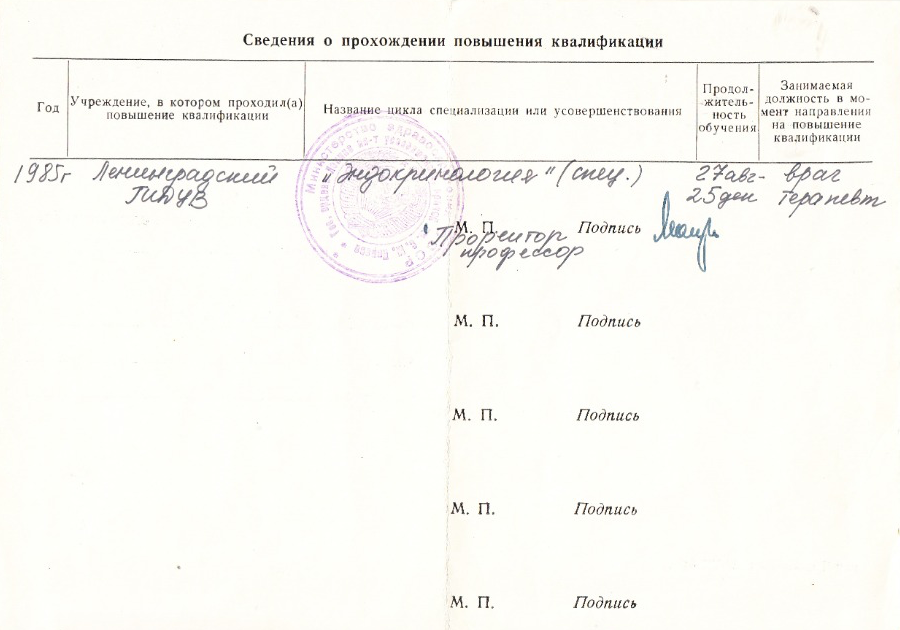 Сведения о прохождении повышения квалификации
Год
Учреждение, в котором проходил(а)
повышение квалификации
Название цикла специализации или усовершенствования
Продол-
житель-
ность
обучения
Занимаемая
должность в мо-
мент направления
на повышение
квалификации
1985г Ленинградский "Эндокринология" (спец.) 27авг- врач
ГИДУВ 25дек терапевт
М. П. Подпись
Проректор
профессор
М. П. Подпись
М. П. Подпись
М. П. Подпись
М. П. Подпись